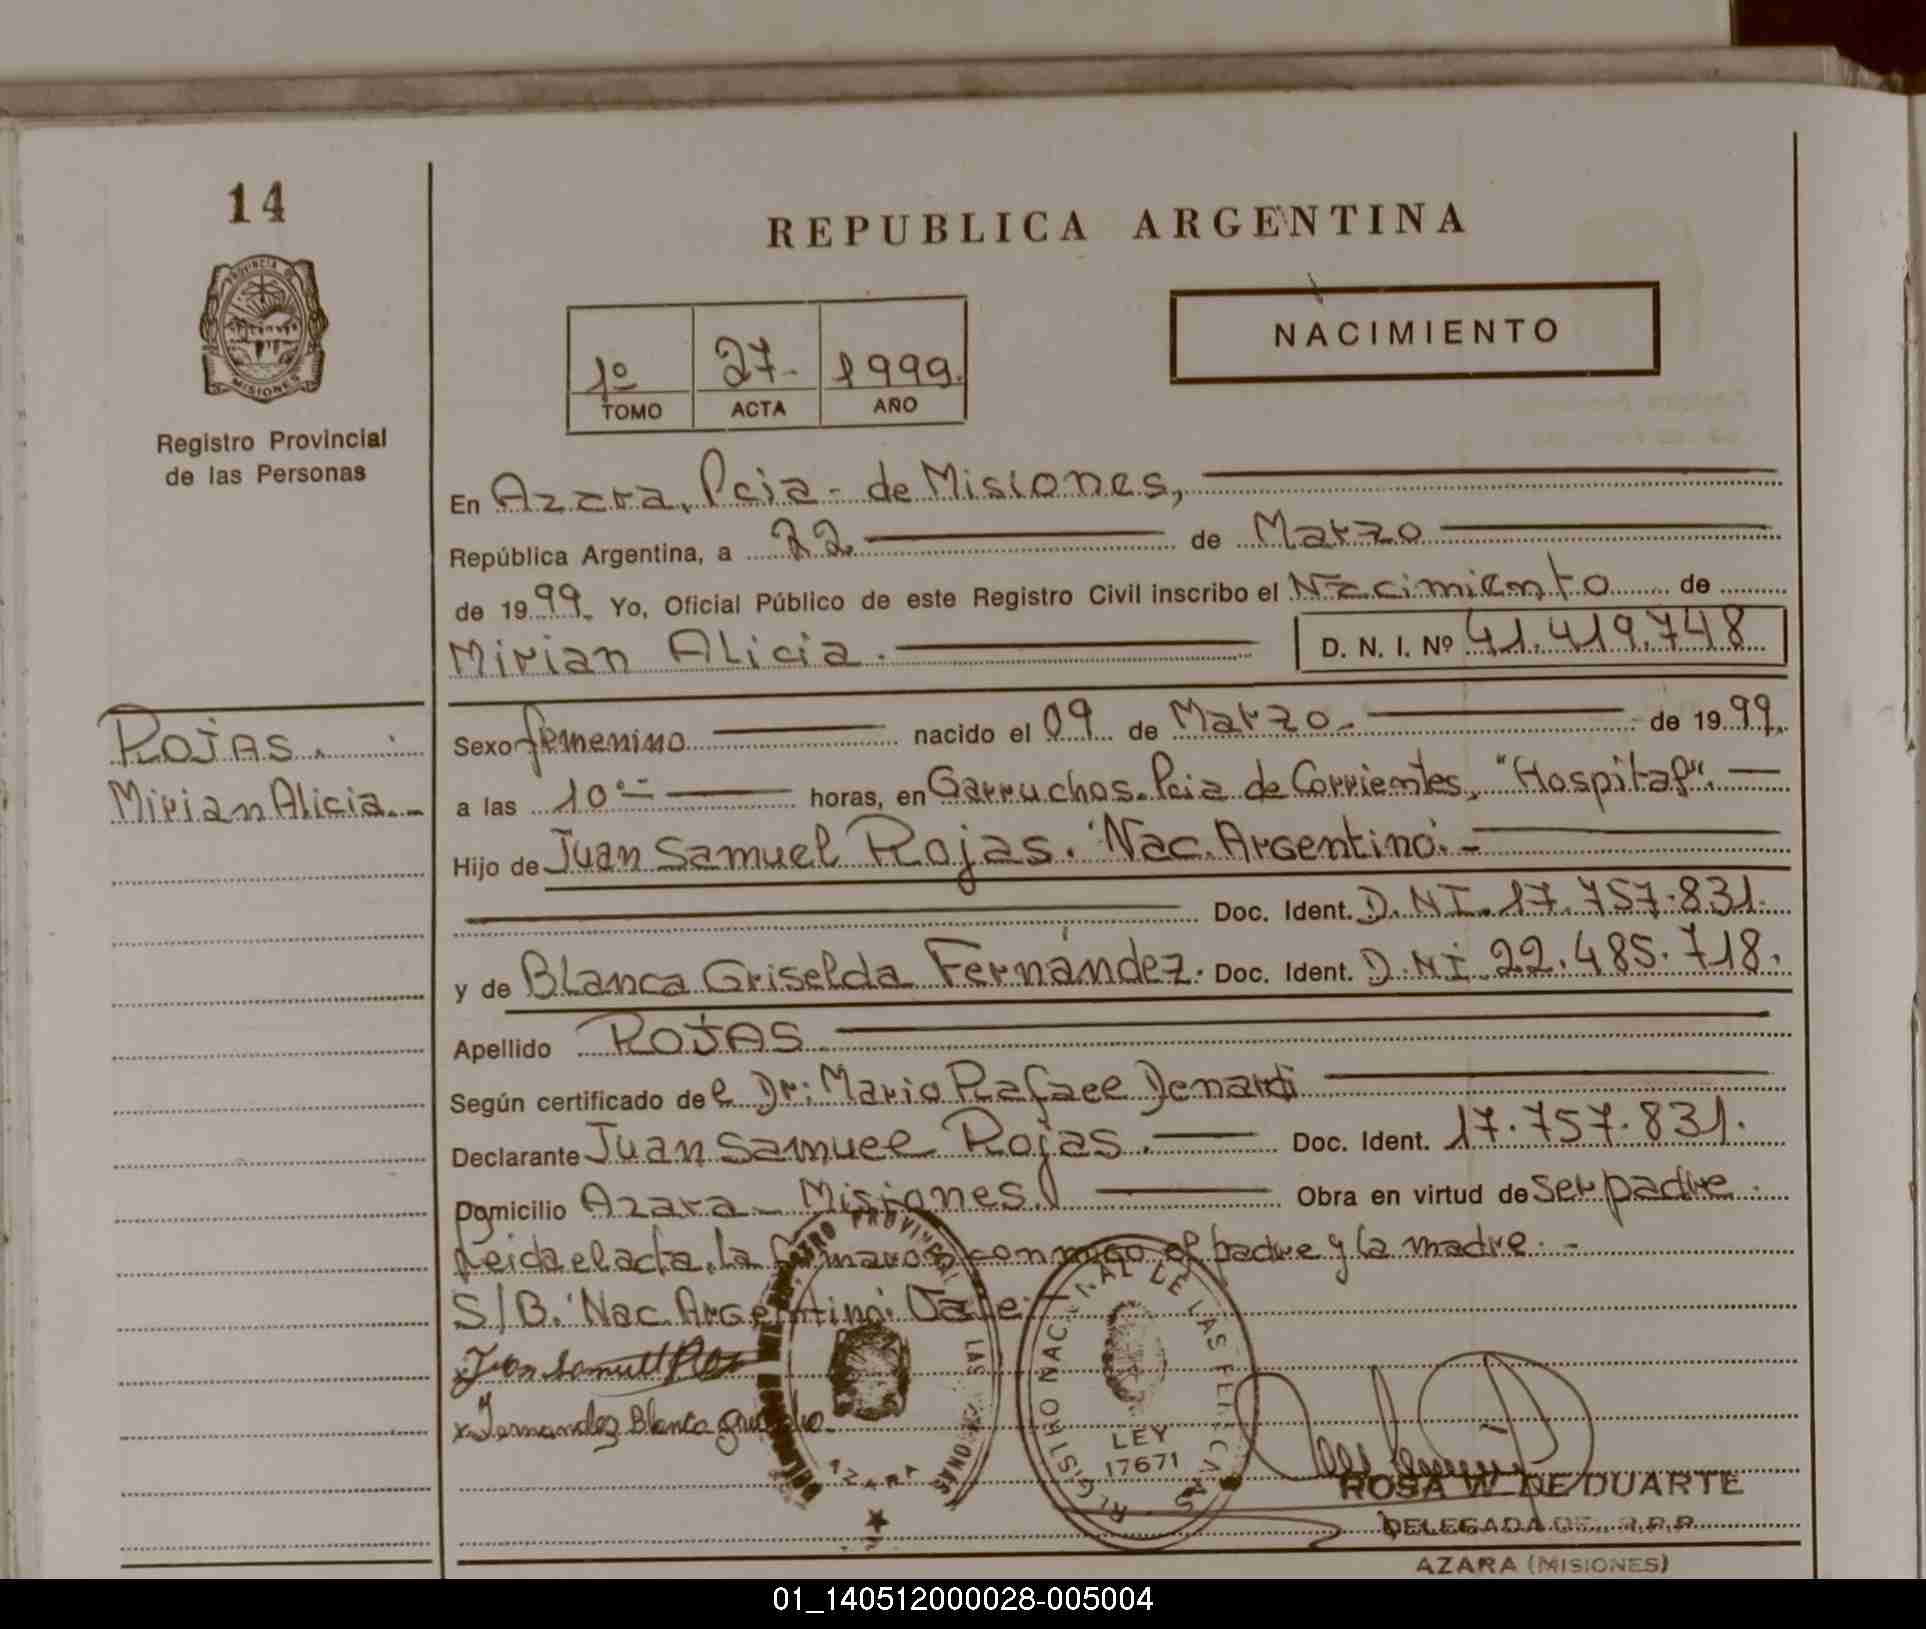 14
REPUBLICA ARGENTINA
PROVINCIA DE
MISIONES
Registro Provincial
de las Personas
1º 27- 1999.
TOMO ACTA AÑO
NACIMIENTO
En Azara, Pcia- de Misiones,
República Argentina, a 22 de Marzo
de 1999. Yo, Oficial Público de este Registro Civil inscribo el Nacimiento de
Mirian Alicia. D. N. I. Nº 41.419.748
ROJAS.
Mirian Alicia.-
Sexo femenino nacido el 09 de Marzo- de 1999.
a las 10 horas, en Garruchos. Pcia de Corrientes, "Hospital".
Hijo de Juan Samuel Rojas. 'Nac. Argentino'.-
Doc. Ident. D.NI. 17.757.831.
y de Blanca Griselda Fernández. Doc. Ident. D.NI. 22.485.718.
Apellido ROJAS
Según certificado del Dr: Mario Rafael Denardi
Declarante Juan Samuel Rojas. Doc. Ident. 17.757.831.
Domicilio Azara- Misiones. Obra en virtud de ser padre.
Leida el acta, la firmaron conmigo el padre y la madre.-
S/B. 'Nac. Argentino'. Vale.-
x Juan Samuel
x Fernandez Blanca
REGISTRO PROVINCIAL DE LAS PERSONAS
AZARA
REGISTRO NACIONAL DE LAS PERSONAS
LEY
17671
ROSA W. DE DUARTE
DELEGADA DEL R.P.P.
AZARA (MISIONES)
01_140512000028-005004